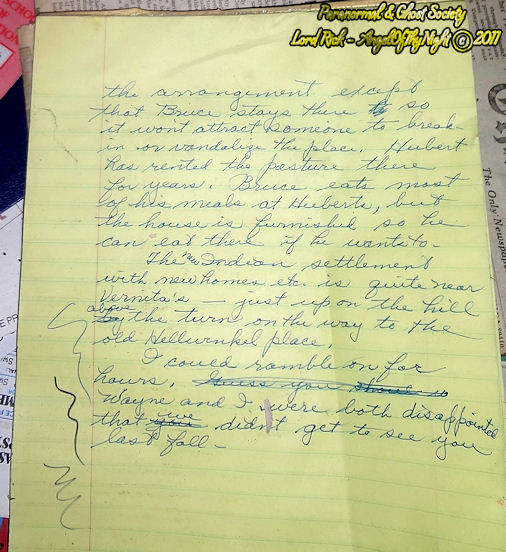 Paranormal & Ghost Society
Lord Rick - AngelOfThyNight © 2017
the arrangement except
that Bruce stays there so
it wont attract someone to break-
in or vandalize the place. Hubert
has rented the pasture there
for years. Bruce eats most
of his meals at Huberts, but
the house is furnished so he
can eat there if he wants to.
The new Indian settlement
with new homes etc. is quite near
Vernita's — just up on the hill
above the turn on the way to the
old Hellwinkel place.
I could ramble on for
hours. Guess you should
Wayne and I were both disappointed
that we didn't get to see you
last fall —
The Only Newspaper